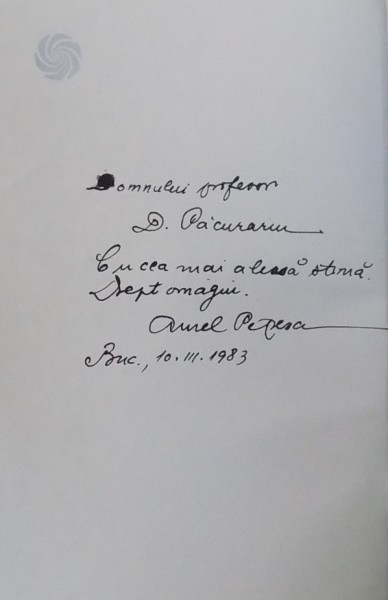 Domnului profesor
D. Păcurariu
Cu cea mai aleasă stimă.
Drept omagiu.
Aurel
Buc., 10.III.1983